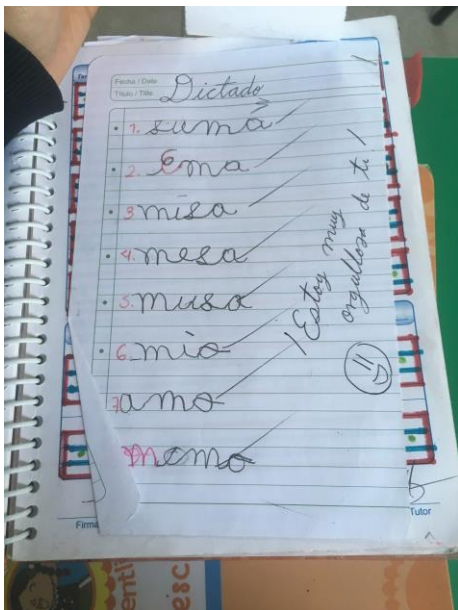 Fecha / Date
Título / Title Dictado
1. suma
2. Ema
3 misa
4. mesa
5. musa
6. mio
7 amo
Memo
¡Estoy muy
orgullosa de ti!
Firma
Tutor